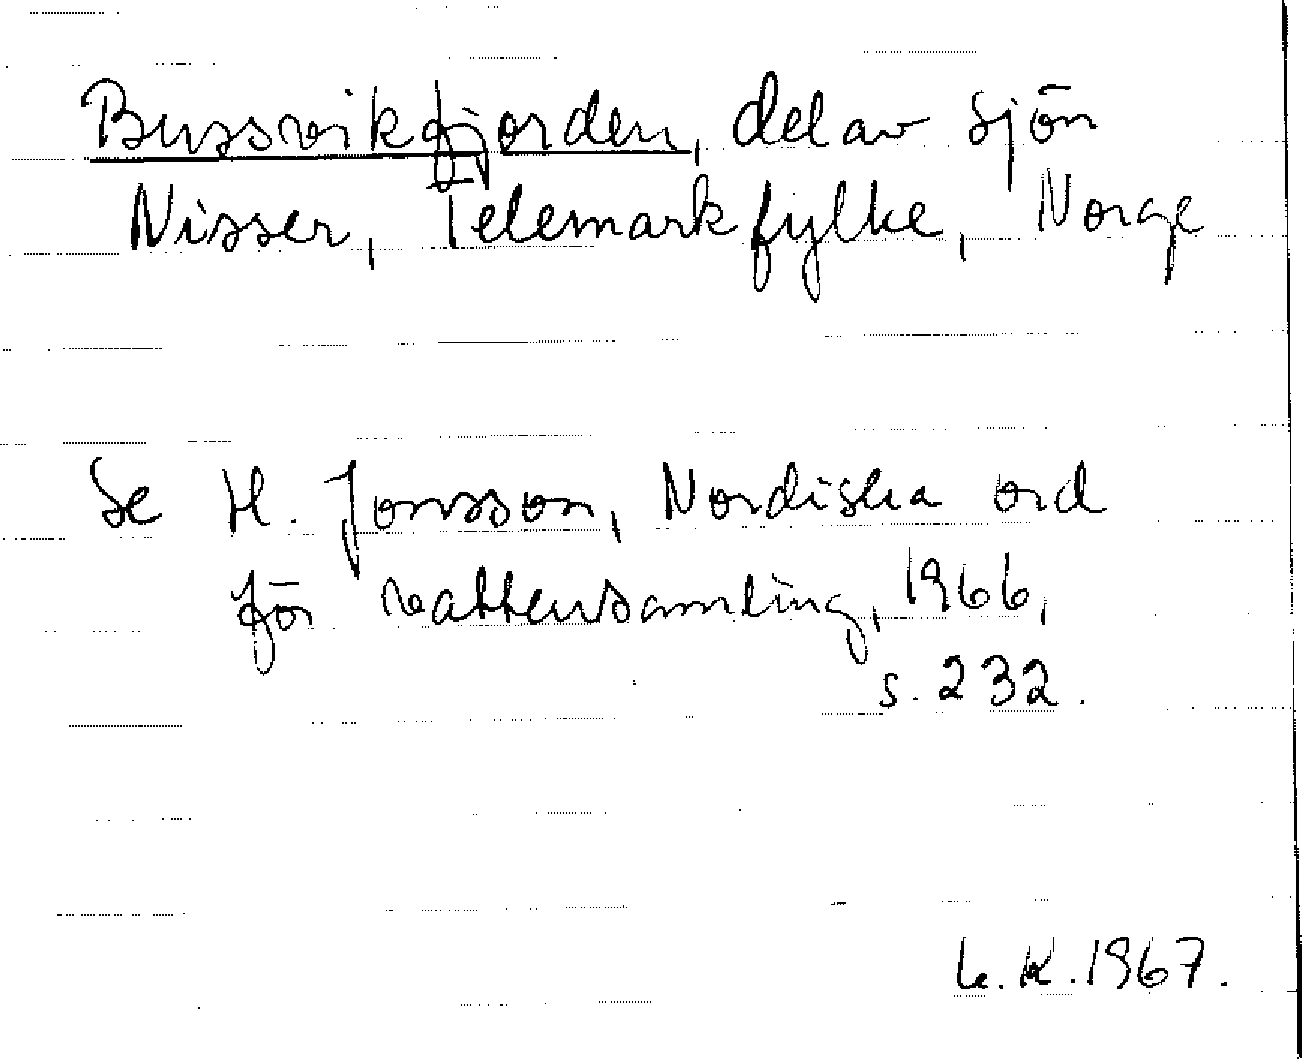 Bussvikfjorden, del av sjön
Nisser, Telemark fylke, Norge
Se H. Jonsson, Nordiska ord
för vattensamling, 1966,
s. 232.
L. K. 1967.